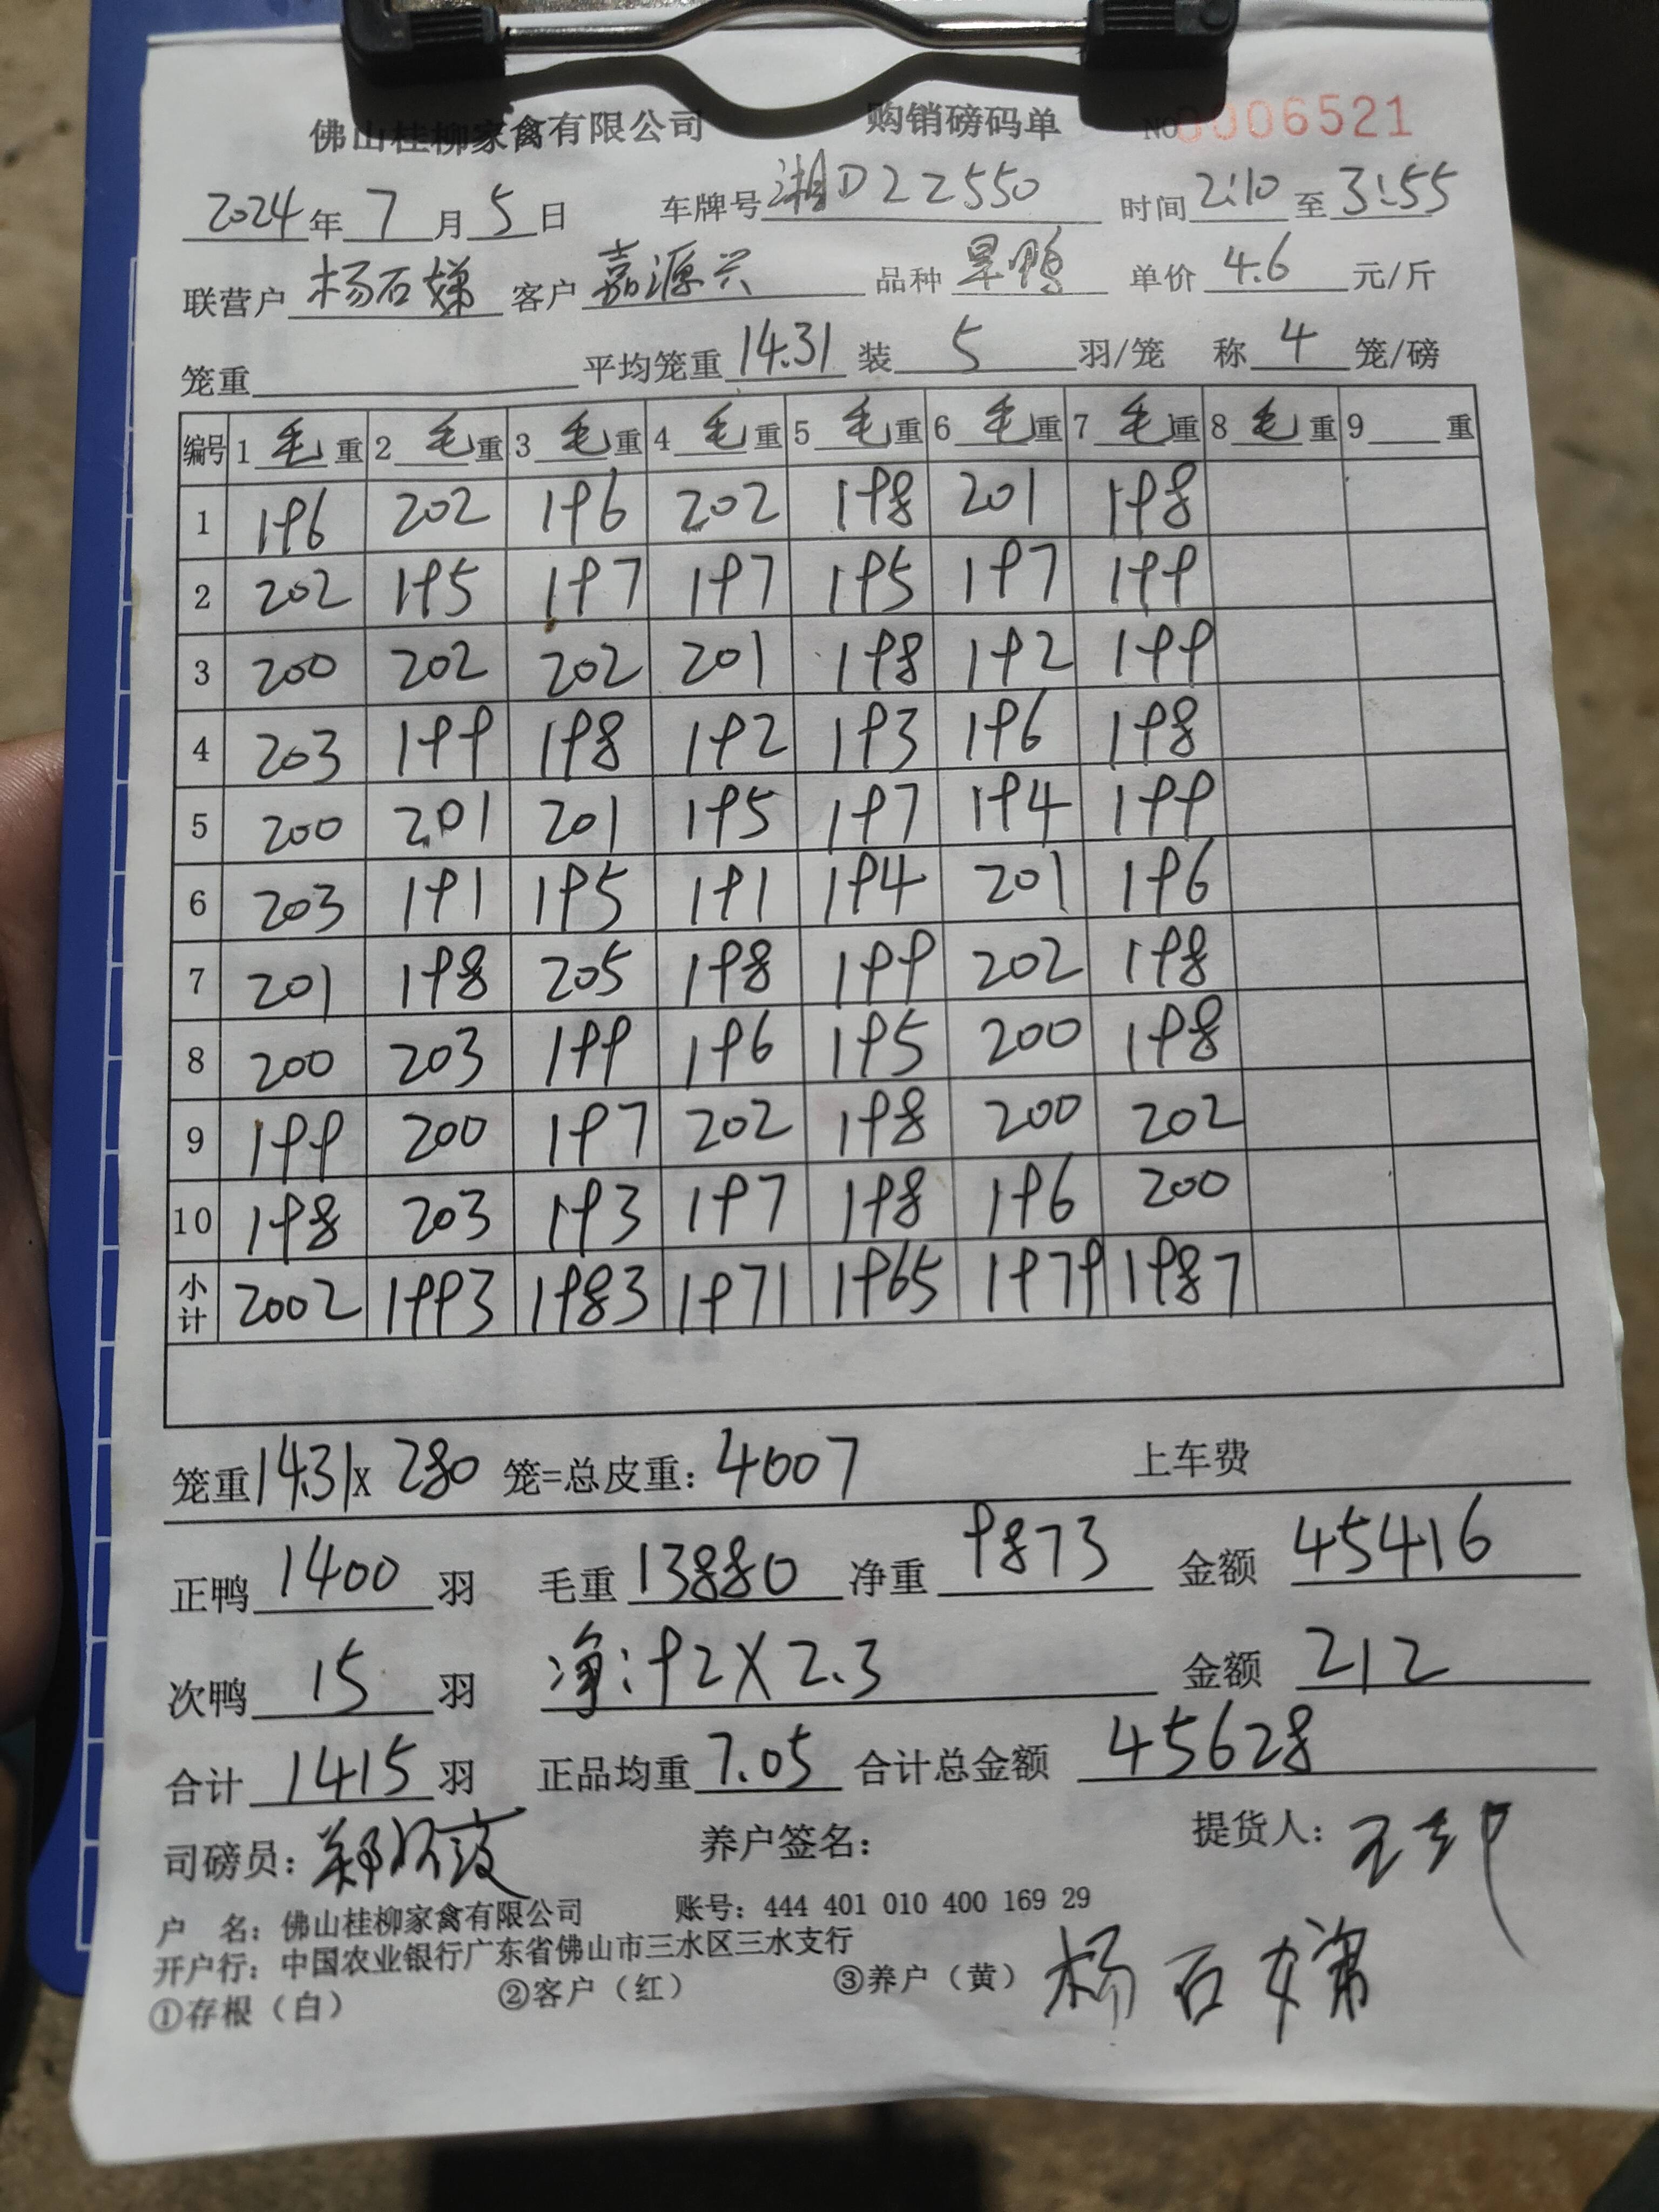 佛山桂柳家禽有限公司 购销磅码单 NO0006521
2024年7月5日 车牌号湘D22550 时间2:10至3:55
联营户 杨石娣 客户 嘉源兴 品种 旱鸭 单价 4.6 元/斤
笼重 平均笼重 14.31 装 5 羽/笼 称 4 笼/磅
编号 1毛重 2毛重 3毛重 4毛重 5毛重 6毛重 7毛重 8毛重 9重
1 196 202 196 202 198 201 198
2 202 195 197 197 195 197 199
3 200 202 202 201 198 192 199
4 203 199 198 192 193 196 198
5 200 201 201 195 197 194 199
6 203 191 195 191 194 201 196
7 201 198 205 198 199 202 198
8 200 203 199 196 195 200 198
9 199 200 197 202 198 200 202
10 198 203 193 197 198 196 200
小计 2002 1993 1983 1971 1965 1979 1987
笼重14.31x 280 笼=总皮重:4007 上车费
正鸭 1400 羽 毛重 13880 净重 9873 金额 45416
次鸭 15 羽 净:92X2.3 金额 212
合计 1415 羽 正品均重 7.05 合计总金额 45628
司磅员: 养户签名: 提货人:
户 名:佛山桂柳家禽有限公司 账号:444 401 010 400 169 29
开户行:中国农业银行广东省佛山市三水区三水支行
①存根(白) ②客户(红) ③养户(黄) 杨石娣